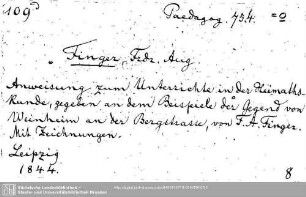 109ᵈ Paedagog. 754. =o
Finger, Frdr. Aug.
Anweisung zum Unterrichte in der Heimaths-
kunde, gegeben an dem Beispiele der Gegend von
Weinheim an der Bergstrasse, von F. A. Finger.
Mit Zeichnungen.
Leipzig
1844. 8
Sächsische Landesbibliothek -
Staats- und Universitätsbibliothek Dresden